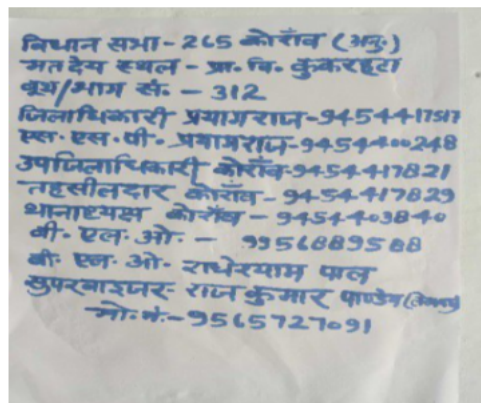 विधान सभा - 265 कोराँव (अनु.)
मतदेय स्थल - प्रा. वि. कुकरहटा
बूथ/भाग सं. - 312
जिलाधिकारी प्रयागराज-9454417517
एस. एस. पी. प्रयागराज-9454400248
उपजिलाधिकारी कोराँव-9454417821
तहसीलदार कोराँव - 9454417829
थानाध्यक्ष कोराँव - 9454403840
बी. एल. ओ. - 9956889588
बी. एल. ओ. राधेश्याम पाल
सुपरवाइजर राज कुमार पाण्डेय
मो. नं. - 9565727091